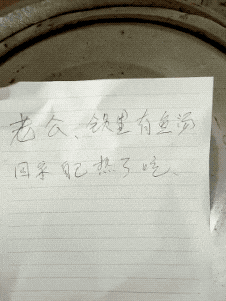 老公、锅里有鱼汤
回来自己热了吃、